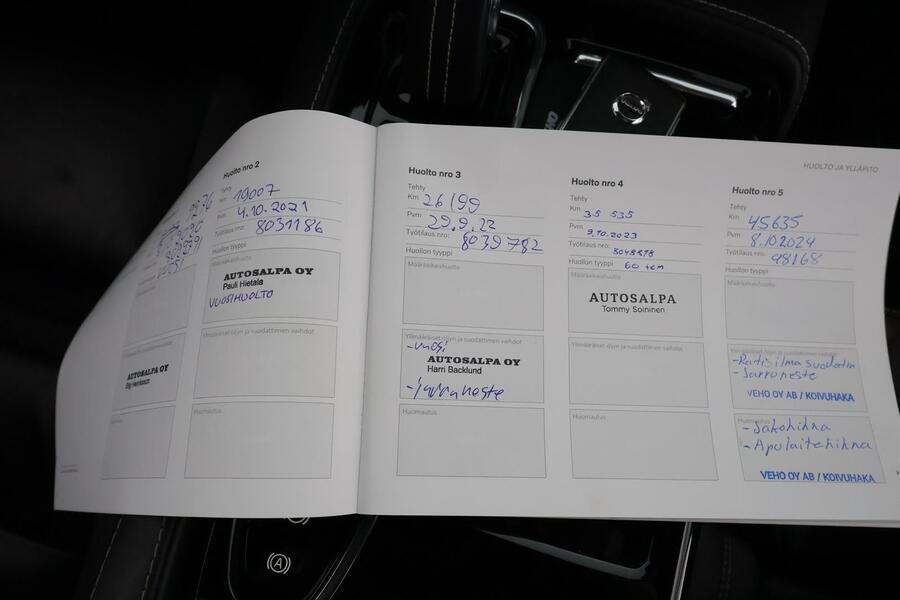 HUOLTO JA YLLÄPITO
AUTOSALPA OY
Huolto nro 2
Tehty
Km 19007
Pvm 4.10.2021
Työtilaus nro: 8031186
Huollon tyyppi
Määräaikaishuolto
AUTOSALPA OY
Pauli Hietala
VUOSIHUOLTO
Ylimääräiset öljyn ja suodattimen vaihdot
Huomautus
Huolto nro 3
Tehty
Km 26199
Pvm 29.9.22
Työtilaus nro: 8039782
Huollon tyyppi
Määräaikaishuolto
Ylimääräiset öljyn ja suodattimen vaihdot
-vuosi
AUTOSALPA OY
Harri Backlund
-jarruneste
Huomautus
Huolto nro 4
Tehty
Km 35 535
Pvm 9.10.2023
Työtilaus nro:
Huollon tyyppi 60 tkm
Määräaikaishuolto
AUTOSALPA
Tommy Soininen
Ylimääräiset öljyn ja suodattimen vaihdot
Huomautus
Huolto nro 5
Tehty
Km 45635
Pvm 8.10.2024
Työtilaus nro: 98168
Huollon tyyppi
Määräaikaishuolto
Ylimääräiset öljyn ja suodattimen vaihdot
-Raitisilmasuodatin
-Jarruneste
VEHO OY AB / KOIVUHAKA
Huomautus
-Jakohihna
-Apulaitehihna
VEHO OY AB / KOIVUHAKA
VOLVO
A